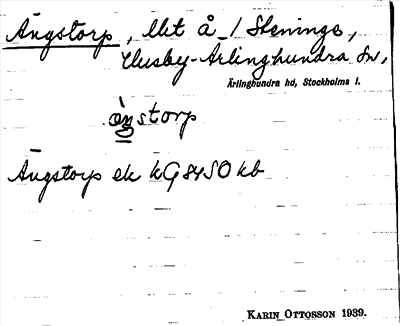 Ängstorp, lht å /Steninge,
Husby-Ärlinghundra sn,
Ärlinghundra hd, Stockholms l.
ängstorp
Ängstorp ek KG 84 SO kb
KARIN OTTOSSON 1939.